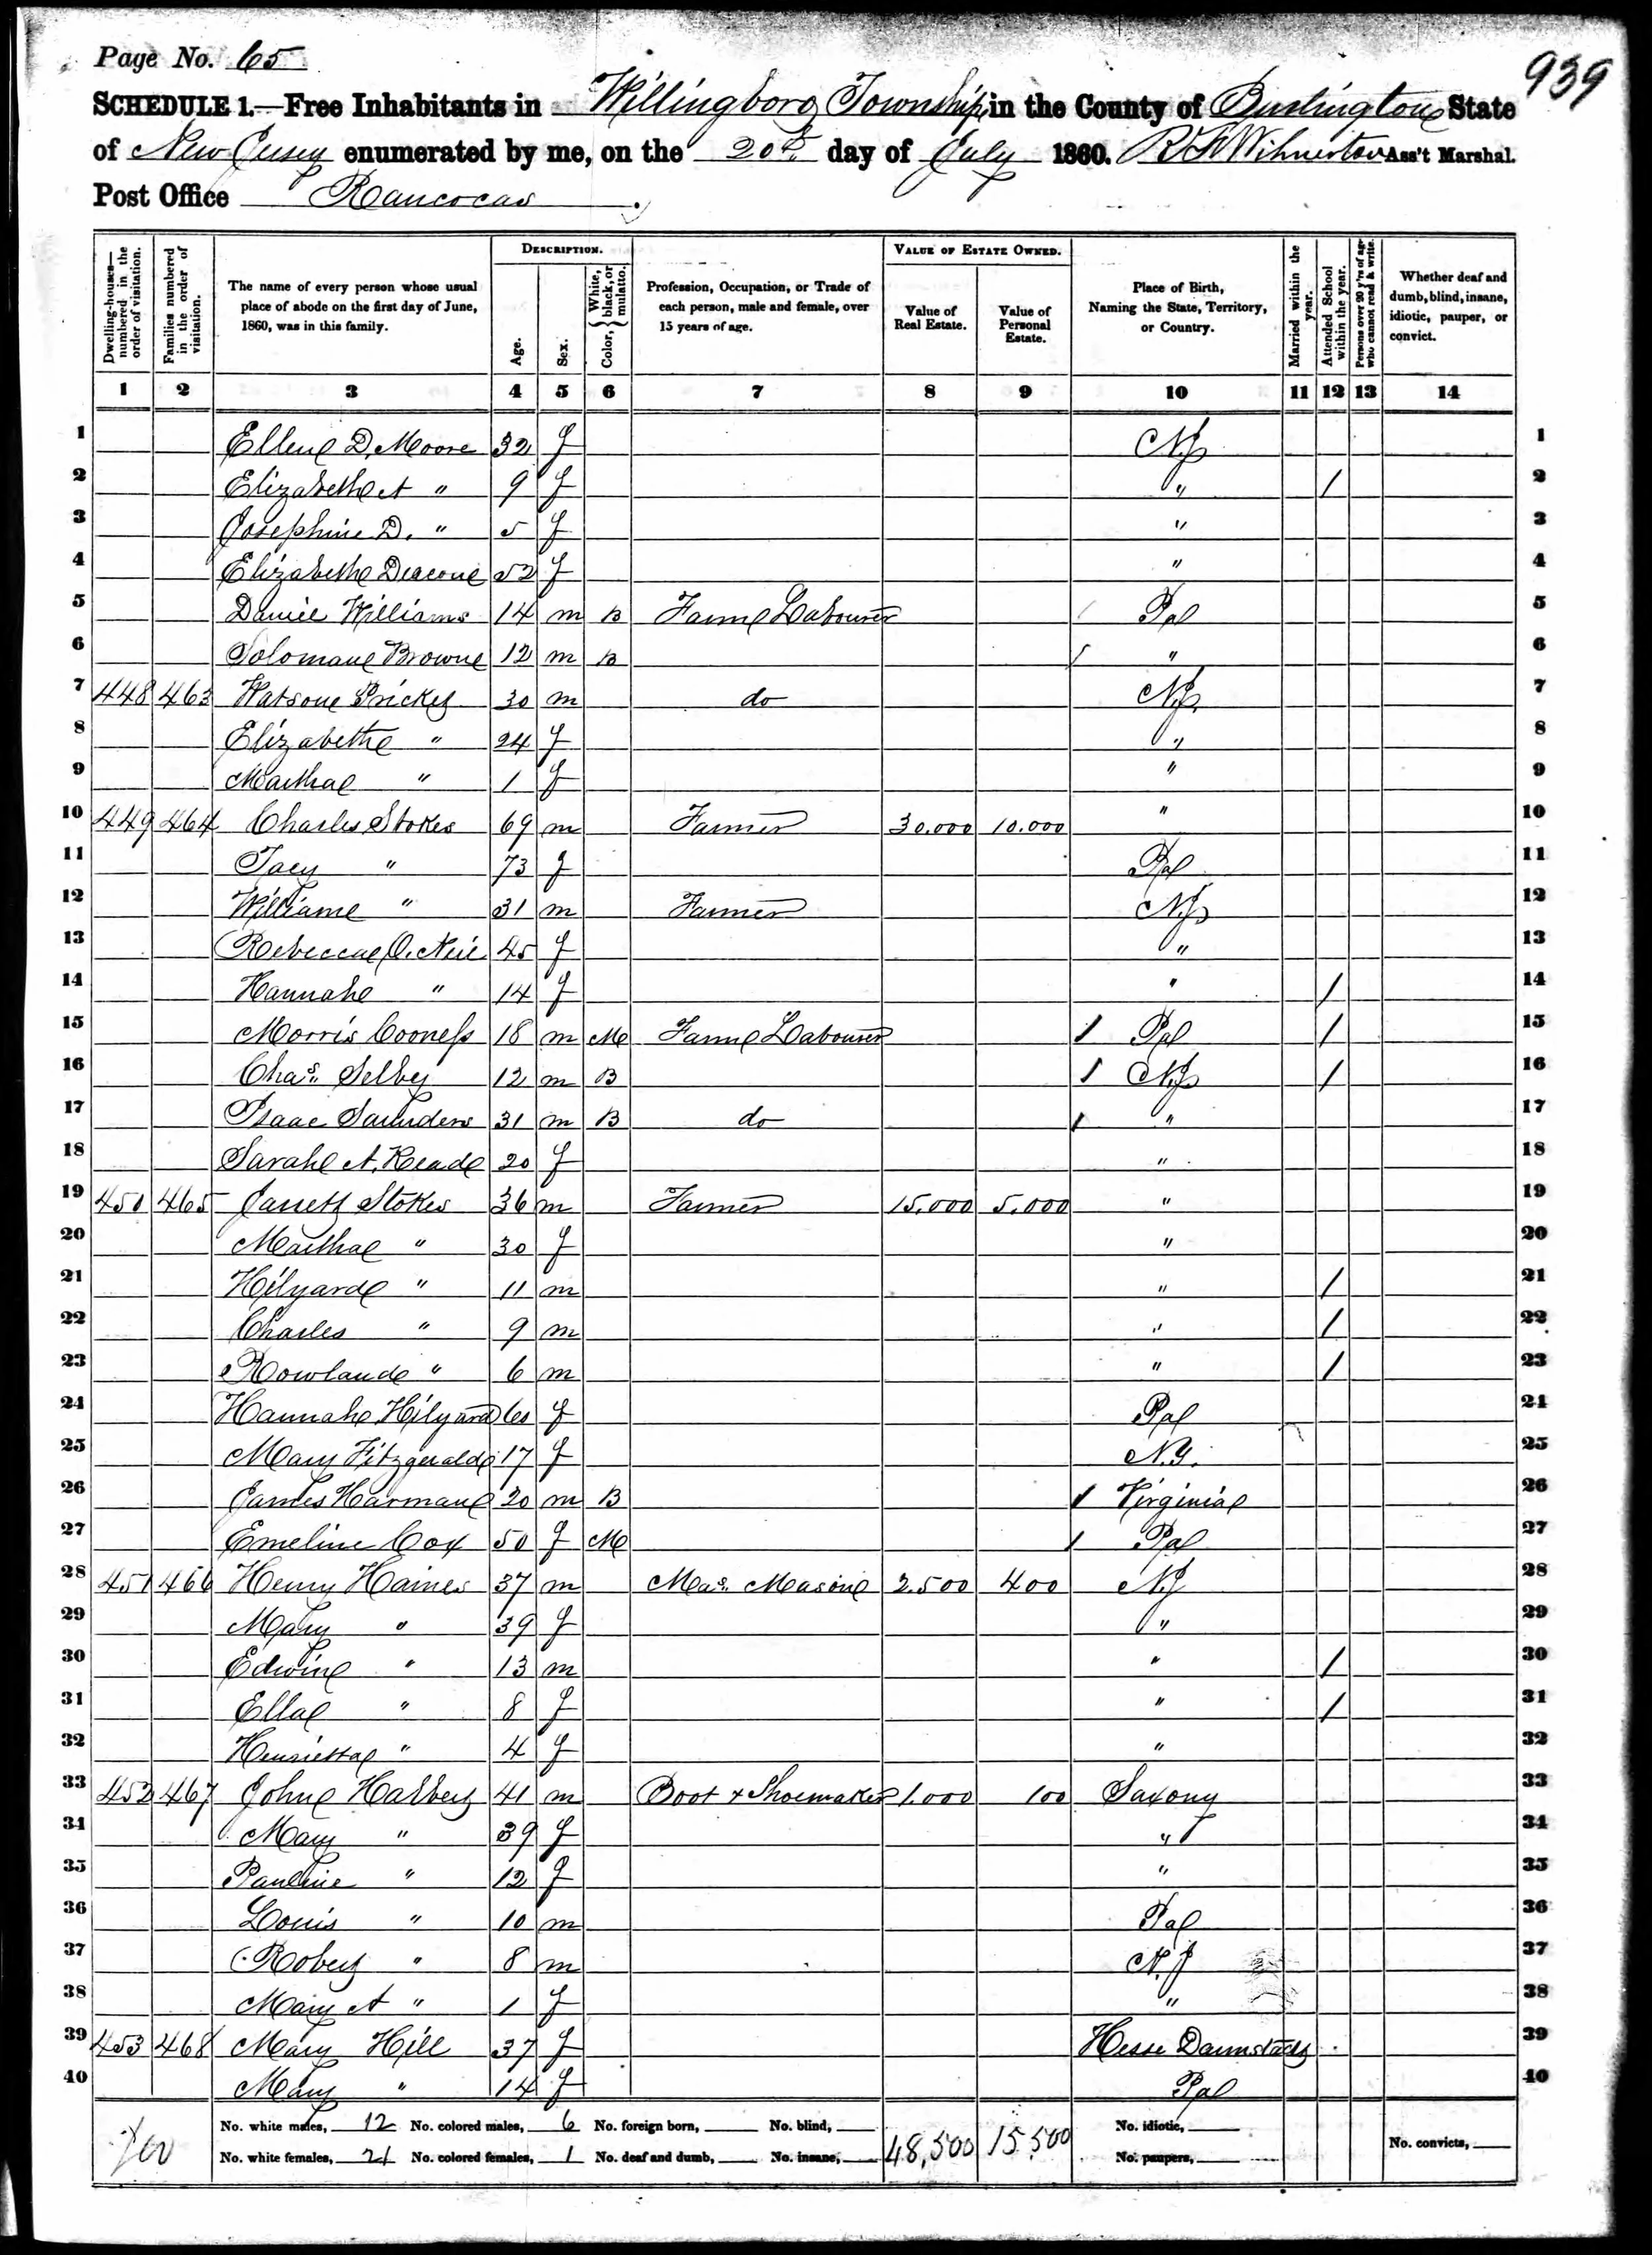 Page No. 65
939
SCHEDULE 1.—Free Inhabitants in Willingboro Township in the County of Burlington State
of New Jersey enumerated by me, on the 20th day of July 1860. Ass't Marshal.
Post Office Rancocas
Dwelling-houses—numbered in the order of visitation.
Families numbered in the order of visitation.
The name of every person whose usual place of abode on the first day of June, 1860, was in this family.
DESCRIPTION.
Age.
Sex.
Color, { White, black, or mulatto.
Profession, Occupation, or Trade of each person, male and female, over 15 years of age.
VALUE OF ESTATE OWNED.
Value of Real Estate.
Value of Personal Estate.
Place of Birth, Naming the State, Territory, or Country.
Married within the year.
Attended School within the year.
Persons over 20 y'rs of age who cannot read & write.
Whether deaf and dumb, blind, insane, idiotic, pauper, or convict.
1 2 3 4 5 6 7 8 9 10 11 12 13 14
1 Ellen D. Moore 32 f N.J. 1
2 Elizabeth A " 9 f " / 2
3 Josephine D. " 5 f " 3
4 Elizabeth Deacon 52 f " 4
5 Daniel Williams 14 m B Farm Labourer Pa 5
6 Soloman Brown 12 m B / " 6
7 448 463 Watson Pricket 30 m do N.J. 7
8 Elizabeth " 24 f " 8
9 Martha " 1 f " 9
10 449 464 Charles Stokes 69 m Farmer 30.000 10.000 " 10
11 Tacy " 73 f Pa 11
12 William " 31 m Farmer N.J. 12
13 Rebecca O. Neil 45 f " 13
14 Hannah " 14 f " / 14
15 Morris 18 m M Farm Labourer / Pa / 15
16 Chas. Selby 12 m B / N.J. / 16
17 Isaac Saunders 31 m B do / " 17
18 Sarah A. Read 20 f " 18
19 450 465 Jarrett Stokes 36 m Farmer 15.000 5.000 " 19
20 Martha " 30 f " 20
21 Hilyard " 11 m " / 21
22 Charles " 9 m " / 22
23 Rowland " 6 m " / 23
24 Hannah Hilyard 60 f Pa 24
25 Mary Fitzgerald 17 f N.Y. 25
26 James Harman 20 m B / Virginia 26
27 Emeline Cox 50 f M / Pa 27
28 451 466 Henry Haines 37 m Mas. Mason 2.500 400 N.J 28
29 Mary " 39 f " 29
30 Edwin " 13 m " / 30
31 Ella " 8 f " / 31
32 Henrietta " 4 f " 32
33 452 467 John Halbert 41 m Boot & Shoemaker 1.000 100 Saxony 33
34 Mary " 39 f " 34
35 Pauline " 12 f " 35
36 Louis " 10 m Pa 36
37 Robert " 8 m N.J 37
38 Mary A " 1 f " 38
39 453 468 Mary Hill 37 f Hesse Darmstadt 39
40 Mary " 14 f Pa 40
No. white males, 12 No. colored males, 6 No. foreign born, No. blind, 48,500 15,500 No. idiotic,
No. white females, 21 No. colored females, 1 No. deaf and dumb, No. insane, No. paupers, No. convicts,